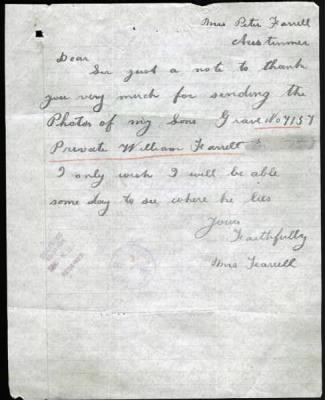 Mrs Peter Farrell
Austinmer
Dear
Sir just a note to thank
you very much for sending the
Photos of my Sons Grave No 4157
Private William Farrell
I only wish I will be able
some day to see where he lies
Yours
Faithfully
Mrs Farrell